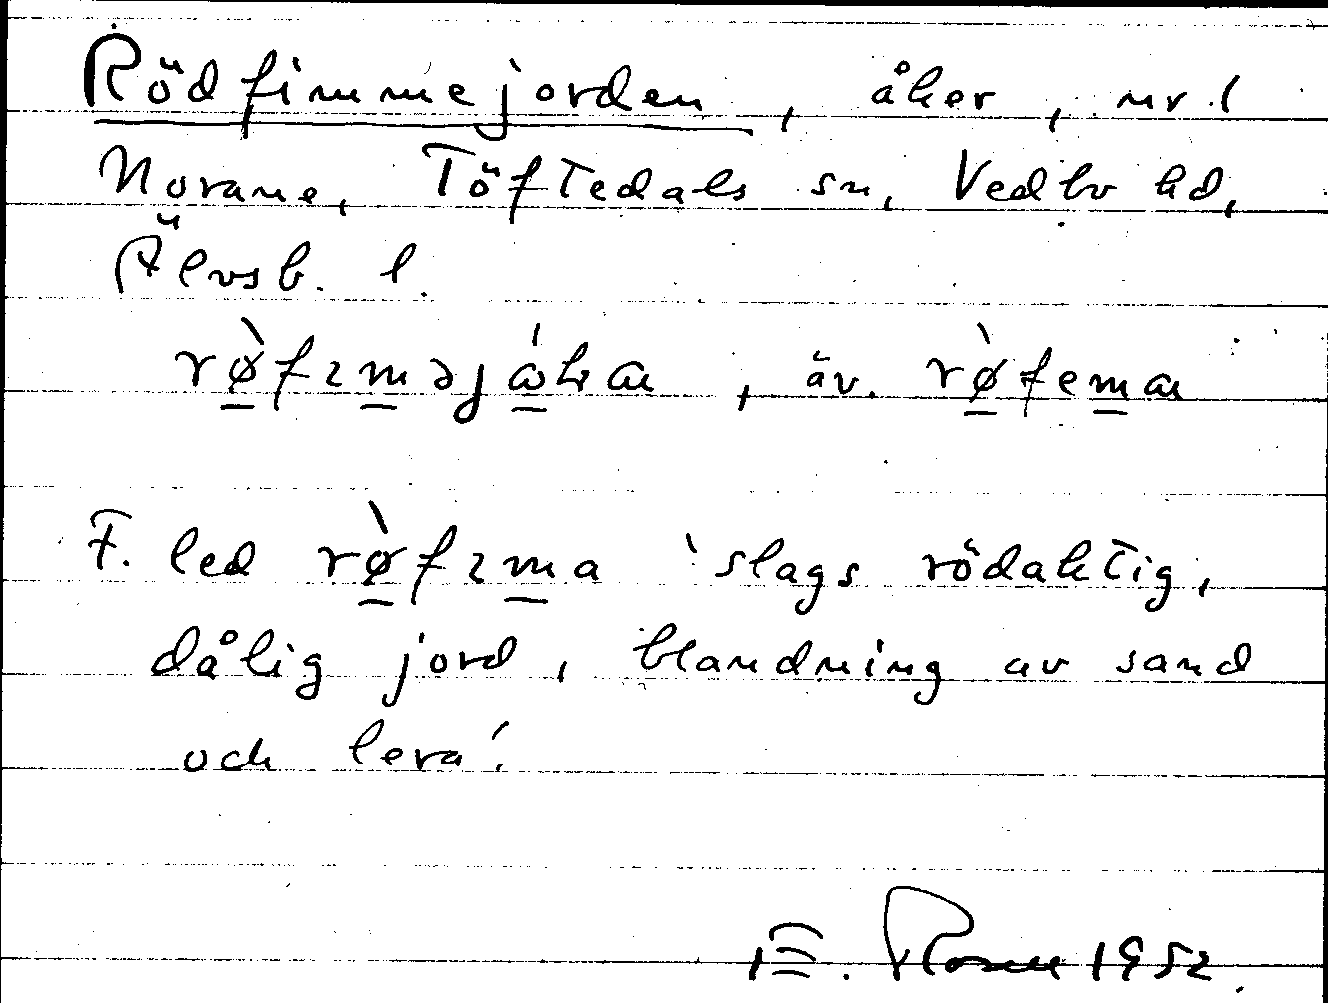 Rödfimmejorden, åker, nr 1
Norane, Töftedals sn, Vedbo hd,
Älvsb. l.
rø̀fıməjákɑ, äv. rø̀femɑ
F. led rø̀fıma 'slags rödaktig,
dålig jord, blandning av sand
och lera'.
E. Rosell 1952.